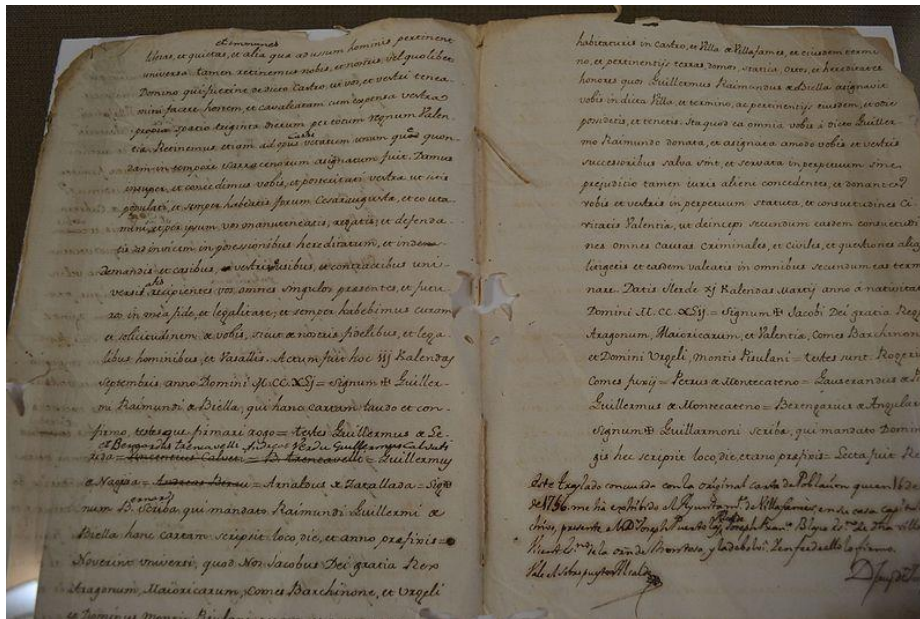 et communes
libras, et quietas, et alia qua ad usum hominis pertinent
universa tamen retinemus nobis, et nostris, vel quolibet
Domino qui fuerint de dicto Castro, ut vos, et vestri tenea-
mini facere hostem, et cavalcatam cum expensa vestra
propria spatio triginta dierum per totum Regnum Valen-
tia. Retinemus etiam ad opus Castri unum quod quon-
dam in tempore sarracenorum asignatum fuit. Damus
insuper, et concedimus vobis, et posteritati vestra ut sitis
populati, et semper habeatis forum Cesaraugusta, et eo uta-
mini, et per ipsum vos manuteneatis, et defenda-
tis ad invicem in possessionibus hereditatum, et in
demandis et casibus, vestris usibus, et contractibus uni-
versis recipientes vos omnes singulos presentes, et futu-
ros in mea fide, et legalitate; et semper habebimus curam
et solicitudinem de vobis, sicut de nostris fidelibus, et lega-
libus hominibus, et Vasallis. Actum fuit hoc iij Kalendas
Septembris anno Domini M.CC.XLj = Signum ✠ Guiller-
mi Raimundi de Biella, qui hanc cartam laudo et con-
firmo, testesque firmari rogo = testes Guillermus de Ce-
= Guillermus
a = Arnaldus de Tarallada = Sig✠
num B. Scriba, qui mandato Raimundi Guillermi de
Biella hanc cartam scripsit loco, die, et anno prefixis =
Noverint universi, quod Nos Jacobus Dei gratia Rex
Aragonum, Maioricarum, Comes Barchinone, et Urgeli
et Dominus Montis
habitaturis in Castro, et Villa de Villafames, et eiusdem termi-
no, et pertinentijs terras, domos, ortos, et hereditates et
honores quos Guillermus Raimundus de Biella asignavit
vobis in dicta Villa, et termino, ac pertinentijs eiusdem, et
possidetis, et tenetis. Ita quod ea omnia vobis a dicto Guiller-
mo Raimundo donata, et asignata amodo vobis et vestris
successoribus salva sint, et servata in perpetuum sine
prejudicio tamen iuris alieni concedentes, et donantes
vobis et vestris in perpetuum statuta, et consuetudines Ci-
vitatis Valentia, ut deinceps secundum easdem consuetudi-
nes omnes causas Criminales, et Civiles, et questiones
litigetis et easdem valeatis in omnibus secundum eas term
nare. Datis Ilerde xj Kalendas Martij anno a nativitat
Domini M.CC. = Signum ✠ Jacobi Dei gratia Reg
Aragonum, Maioricarum, et Valentia, Comes Barchinon
et Domini Urgeli, Montis Pisulani = testes sunt. Roger
Comes = Petrus de Montecateno =
Guillermus de Montecateno = Berengarius de Angular
Signum ✠ Guillarmoni Scriba, qui mandato Domin
gis hec scripsit loco, die, et ano prefixis =
Este traslado concuerda con la original carta de Poblazion que en 16 de
de 1736. me ha exhibido el Ayuntamto. de Villafames, en su casa capi
presente el Dr. Joseph Puerto